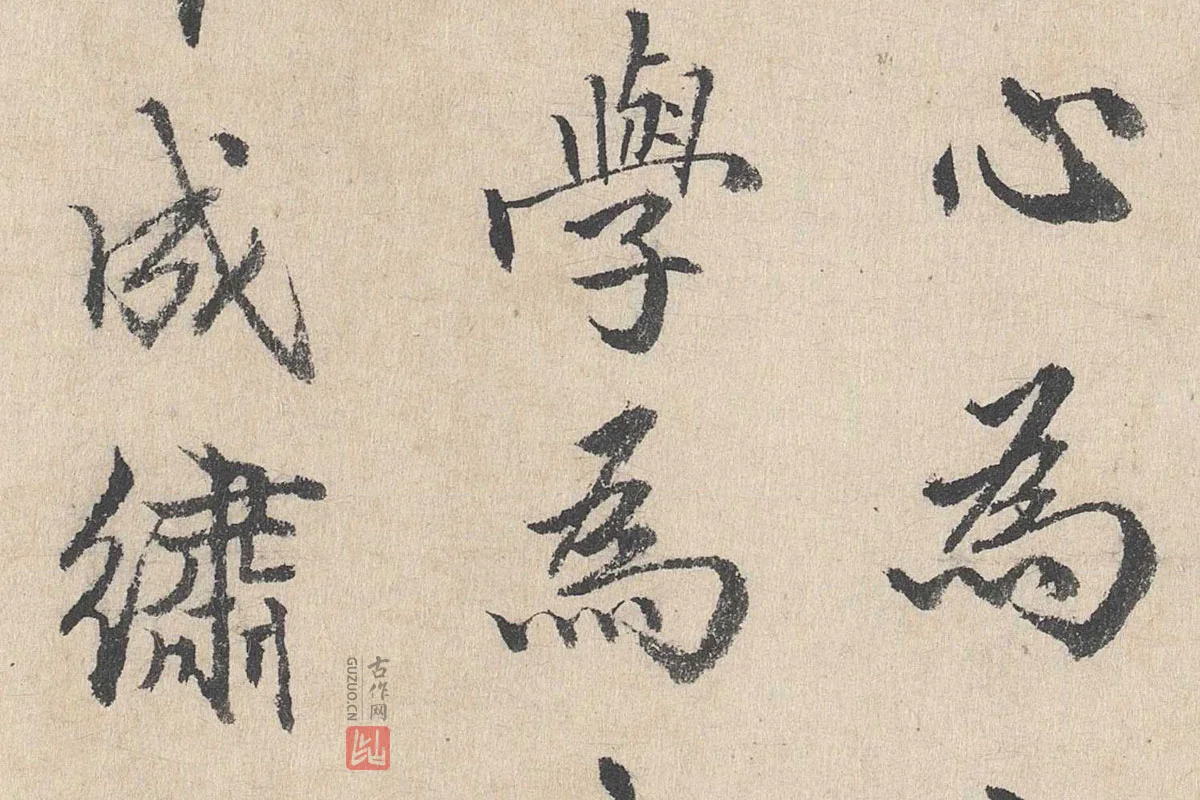 心為
學為
成繡
古作网
GUZUO.CN